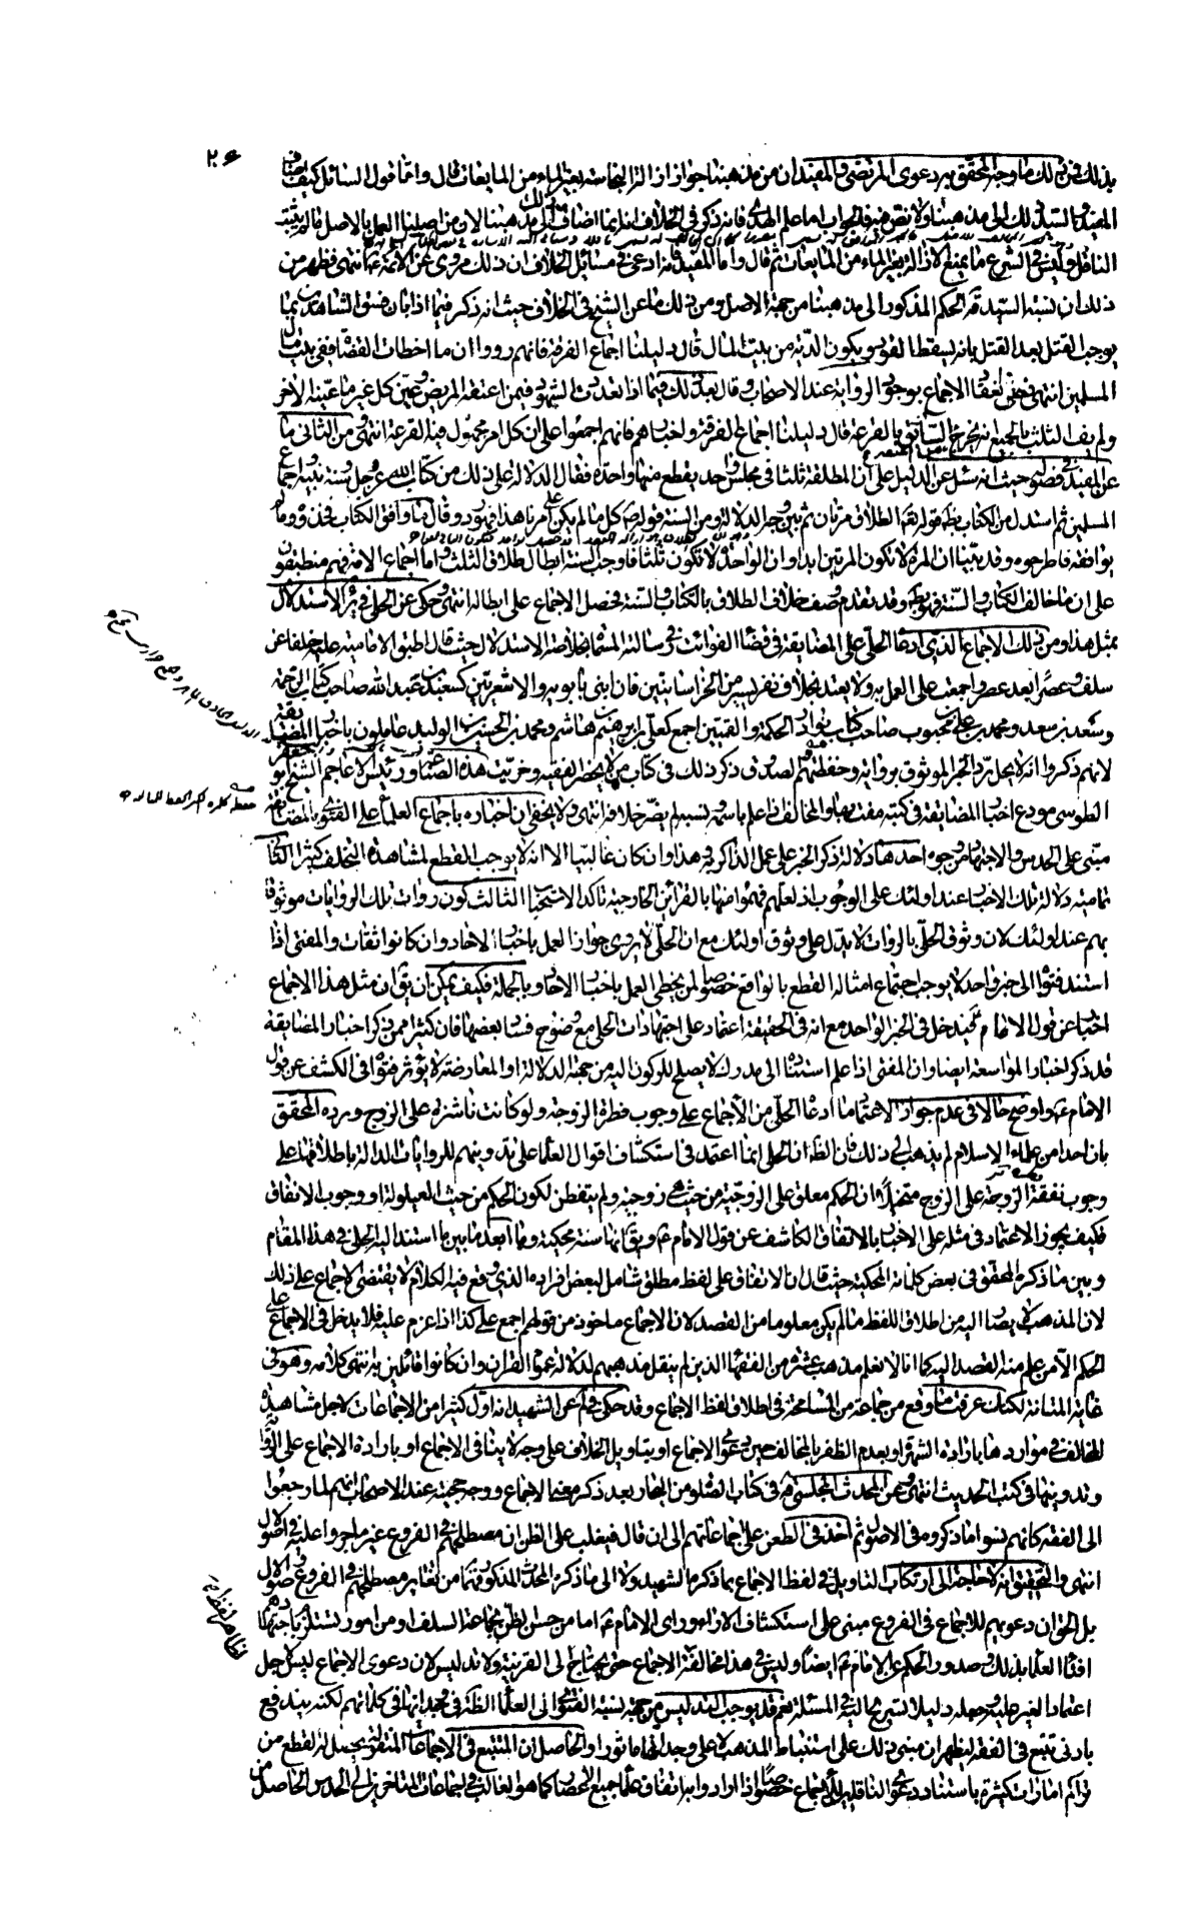 ٢٠٦
بذلك فمن ذلك ما وجه المحقق به دعوى المرتضى والمفيد ان من مذهبنا جواز ازالة النجاسة بغير الماء من المايعات قال واما قول السائل كيف اضاف
المفيد والسيد ذلك الى مذهبنا ولا نص فيه فالجواب اما علم الهدى فانه ذكر في الخلاف انه انما اضاف ذلك الى مذهبنا لان من اصلنا العمل بالاصل ما لم يثبت
الناقل وليس في الشرع ما يمنع الازالة بغير الماء من المايعات ثم قال واما المفيد فانه ادعى في مسائل الخلاف ان ذلك مروى عن الائمة ع انتهى فظهر من
ذلك ان نسبة السيد قده الحكم المذكور الى مذهبنا من جهة الاصل ومن ذلك ما عن الشيخ في الخلاف حيث انه ذكر فيما اذا بان فسق الشاهدين بما
يوجب القتل بعد القتل بانه يسقط القود ويكون الدية من بيت المال قال دليلنا اجماع الفرقة فانهم رووا ان ما اخطات القضاة ففى بيت مال
المسلمين انتهى فعلل انعقاد الاجماع بوجود الرواية عند الاصحاب وقال بعد ذلك فيما اذا تعددت الشهود فيمن اعتقه المريض وعين كل غير ما عينه الاخر
ولم يف الثلث بالجميع انه يخرج السابق بالقرعة قال دليلنا اجماع الفرقة واخبارهم فانهم اجمعوا على ان كل امر مجهول فيه القرعة انتهى ومن الثانى ما
عن المفيد في فصوله حيث انه سئل عن الدليل على ان المطلقة ثلثا في مجلس واحد يقطع منها واحدة فقال الدلالة على ذلك من كتاب الله عز وجل وسنة نبيه واجماع
المسلمين ثم استدل من الكتاب بظاهر قوله تعالى الطلاق مرتان ثم بين وجه الدلالة ومن السنة قوله ص كل ما لم يكن على امرنا هذا فهو رد وقال ما وافق الكتاب فخذوه وما لم
يوافقه فاطرحوه وقد بينا ان المرة لا تكون المرتين ابدا وان الواحدة لا تكون ثلثا فاوجب السنة ابطال طلاق الثلث واما اجماع الامة فهم مطبقون
على ان ما خالف الكتاب والسنة فهو باطل وقد تقدم وصف خلاف الطلاق بالكتاب والسنة فحصل الاجماع على ابطاله انتهى وحكى عن الحلى في السرائر الاستدلال
بمثل هذا ومن ذلك الاجماع الذى ادعاه الحلى على المضايقة في قضاء الفوائت في رسالته المسماة بخلاصة الاستدلال حيث قال اطبق الامامية عليه خلفا عن
سلف وعصرا بعد عصر واجمعت على العمل به ولا يعتد بخلاف نفر يسير من الخراسانيين فان ابنى بابويه والاشعريين كسعد بن عبد الله صاحب كتاب الرحمة
وسعد بن سعد ومحمد بن على بن محبوب صاحب كتاب نوادر الحكمة والقميين اجمع كعلى بن ابراهيم بن هاشم ومحمد بن الحسن بن الوليد عاملون باخبار المضايقة
لانهم ذكروا انه لا يحل رد الخبر الموثوق برواته وحفظتهم الصدوق ذكر ذلك في كتاب من لا يحضره الفقيه وخريت هذه الصناعة ورئيس الاعاجم الشيخ ابو جعفر
الطوسى مودع اخبار المضايقة في كتبه مفت بها والمخالف اذا علم باسمه ونسبه لم يضر خلافه انتهى ولا يخفى ان اخباره باجماع العلماء على الفتوى بالمضايقة
مبنى على الحدس والاجتهاد من وجوه احدها دلالة ذكر الخبر على عمل الذاكر به وهذا وان كان غالبيا الا انه لا يوجب القطع لمشاهدة التخلف كثيرا الثانى
تمامية دلالة تلك الاخبار عند اولئك على الوجوب اذ لعلهم فهموا منها بالقرائن الخارجية تاكد الاستحباب الثالث كون رواة تلك الروايات موثوقا
بهم عند اولئك لان وثوق الحلى بالرواة لا يدل على وثوق اولئك مع ان الحلى لا يرى جواز العمل باخبار الاحاد وان كانوا ثقات والمفتى اذا
استند فتواه الى خبر واحد لا يوجب اجتماع امثاله القطع بالواقع خصوصا لمن يخطئ العمل باخبار الاحاد وبالجملة فكيف يمكن ان يق ان مثل هذا الاجماع
اخبار عن قول الامام ع فيدخل في الخبر الواحد مع انه في الحقيقة اعتماد على اجتهادات الحلى مع وضوح فساد بعضها فان كثيرا ممن ذكر اخبار المضايقة
قد ذكر اخبار المواسعة ايضا وان المفتى اذا علم استناده الى مدرك لا يصلح للركون اليه من جهة الدلالة او المعارضة لا يؤثر فتواه في الكشف عن قول
الامام ع واوضح حالا في عدم جواز الاعتماد ما ادعاه الحلى من الاجماع على وجوب فطرة الزوجة ولو كانت ناشزة على الزوج ورده المحقق
بان احدا من علماء الاسلام لم يذهب الى ذلك فان الظ ان الحلى انما اعتمد في استكشاف اقوال العلماء على تدوينهم للروايات الدالة باطلاقها على
وجوب نفقة الزوجة على الزوج متخيلا ان الحكم معلق على الزوجية من حيث هى زوجية ولم يتفطن لكون الحكم من حيث العيلولة او وجوب الانفاق
فكيف يجوز الاعتماد في مثله على الاخبار بالاتفاق الكاشف عن قول الامام ع ويق انها سنة محكية وما ابعد ما بين ما استند اليه الحلى في هذا المقام
وبين ما ذكره المحقق في بعض كلماته المحكية حيث قال ان الاتفاق على لفظ مطلق شامل لبعض افراده الذى وقع فيه الكلام لا يقتضى الاجماع على ذلك
لان المذهب لا يصار اليه من اطلاق اللفظ ما لم يكن معلوما من القصد لان الاجماع ماخوذ من قولهم اجمع على كذا اذا عزم عليه فلا يدخل في الاجماع على
الحكم الا من علم منه القصد اليه كما انا لا نعلم مذهب عشرة من الفقهاء الذين لم ينقل مذهبهم لدلالة عموم القران وان كانوا قائلين به انتهى كلامه وهو في
غاية المتانة لكنك عرفت ما وقع من جماعة من المسامحة في اطلاق لفظ الاجماع وقد حكى في لم عن الشهيد انه اول كثيرا من الاجماعات لاجل مشاهدة
المخالف في مواردها بارادة الشهرة او بعدم الظفر بالمخالف حين دعوى الاجماع او بتاويل الخلاف على وجه لا ينافى الاجماع او بارادة الاجماع على الرواية
وتدوينها في كتب الحديث انتهى وعن المحدث المجلسى قده في كتاب الصلوة من البحار بعد ذكر معنى الاجماع ووجه حجيته عند الاصحاب انهم لما رجعوا
الى الفقه كانهم نسوا ما ذكروه في الاصول ثم اخذ في الطعن على اجماعاتهم الى ان قال فيغلب على الظن ان مصطلحهم في الفروع غير ما جروا عليه في الاصول
انتهى والتحقيق انه لا حاجة الى ارتكاب التاويل في لفظ الاجماع بما ذكره الشهيد ولا الى ما ذكره المحدث المذكور قدهما من تغاير مصطلحهم في الفروع والاصول
بل الحق ان دعويهم للاجماع في الفروع مبنى على استكشاف الاراء وراى الامام ع اما من حسن الظن بجماعة السلف او من امور تستلزم باجتهادهم
افتاء العلماء بذلك وصدور الحكم عن الامام ع ايضا وليس في هذا مخالفة الاجماع حتى يحتاج الى القرينة ولا تدليس لان دعوى الاجماع ليس لاجل
اعتماد الغير عليه وجعله دليلا يستريح اليه في المسئلة نعم قد يوجب التدليس من جهة نسبة الفتوى الى العلماء الظاهرة في وجدانها في كلماتهم لكنه يندفع
بادنى تتبع في الفقه ليظهر ان مبنى ذلك على استنباط المذهب لا على وجدانها ماثورا والحاصل ان المتتبع في الاجماعات المنقولة يحصل له القطع من
تراكم امارات كثيرة باستناد دعوى الناقلين للاجماع خصوصا اذا ارادوا به اتفاق علماء جميع الاعصار كما هو الغالب في اجماعات المتاخرين الى الحدس الحاصل من